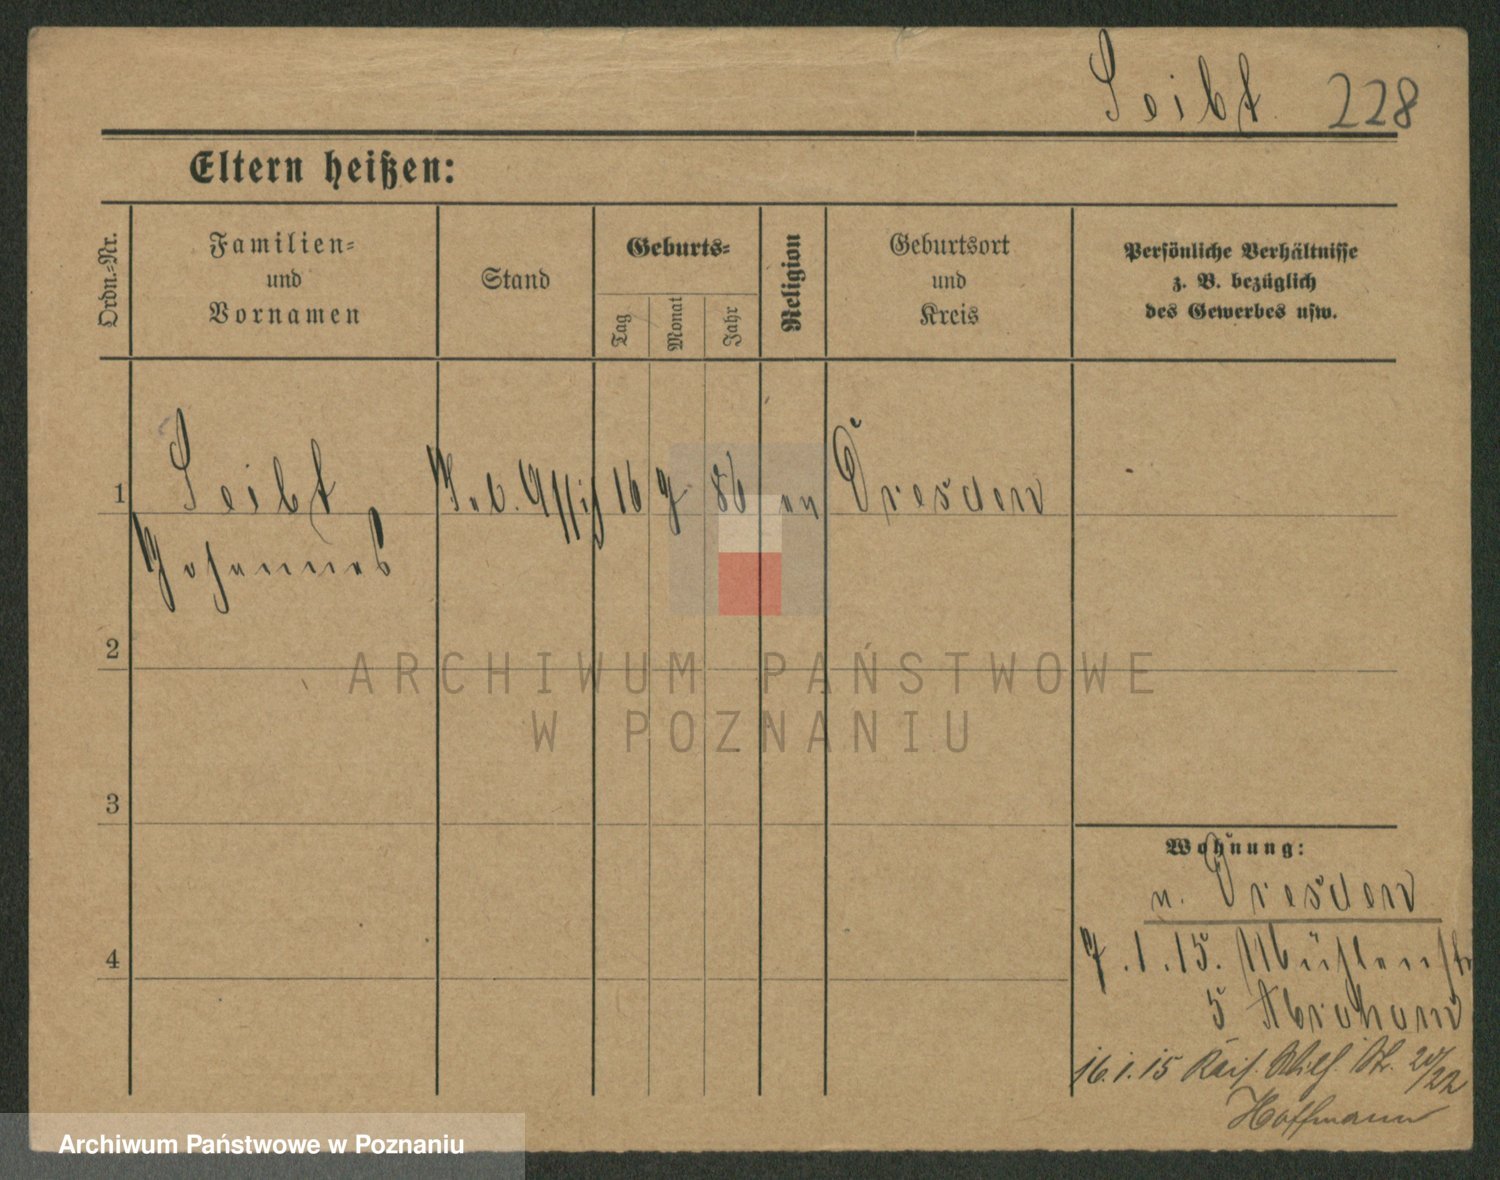 Seibt 228
Eltern heißen:
Ordn.-Nr.
Familien-
und
Vornamen
Stand
Geburts-
Tag
Monat
Jahr
Religion
Geburtsort
und
Kreis
Persönliche Verhältnisse
z. B. bezüglich
des Gewerbes usw.
1 Seibt 16 7 86 ev Dresden
Johannes
2
3
4
ARCHIWUM PAŃSTWOWE
W POZNANIU
Wohnung:
n. Dresden
7.1.15. Mühlenstr
5 Abraham
16.1.15 Kais. Wilh. Str. 20/22
Hoffmann
Archiwum Państwowe w Poznaniu